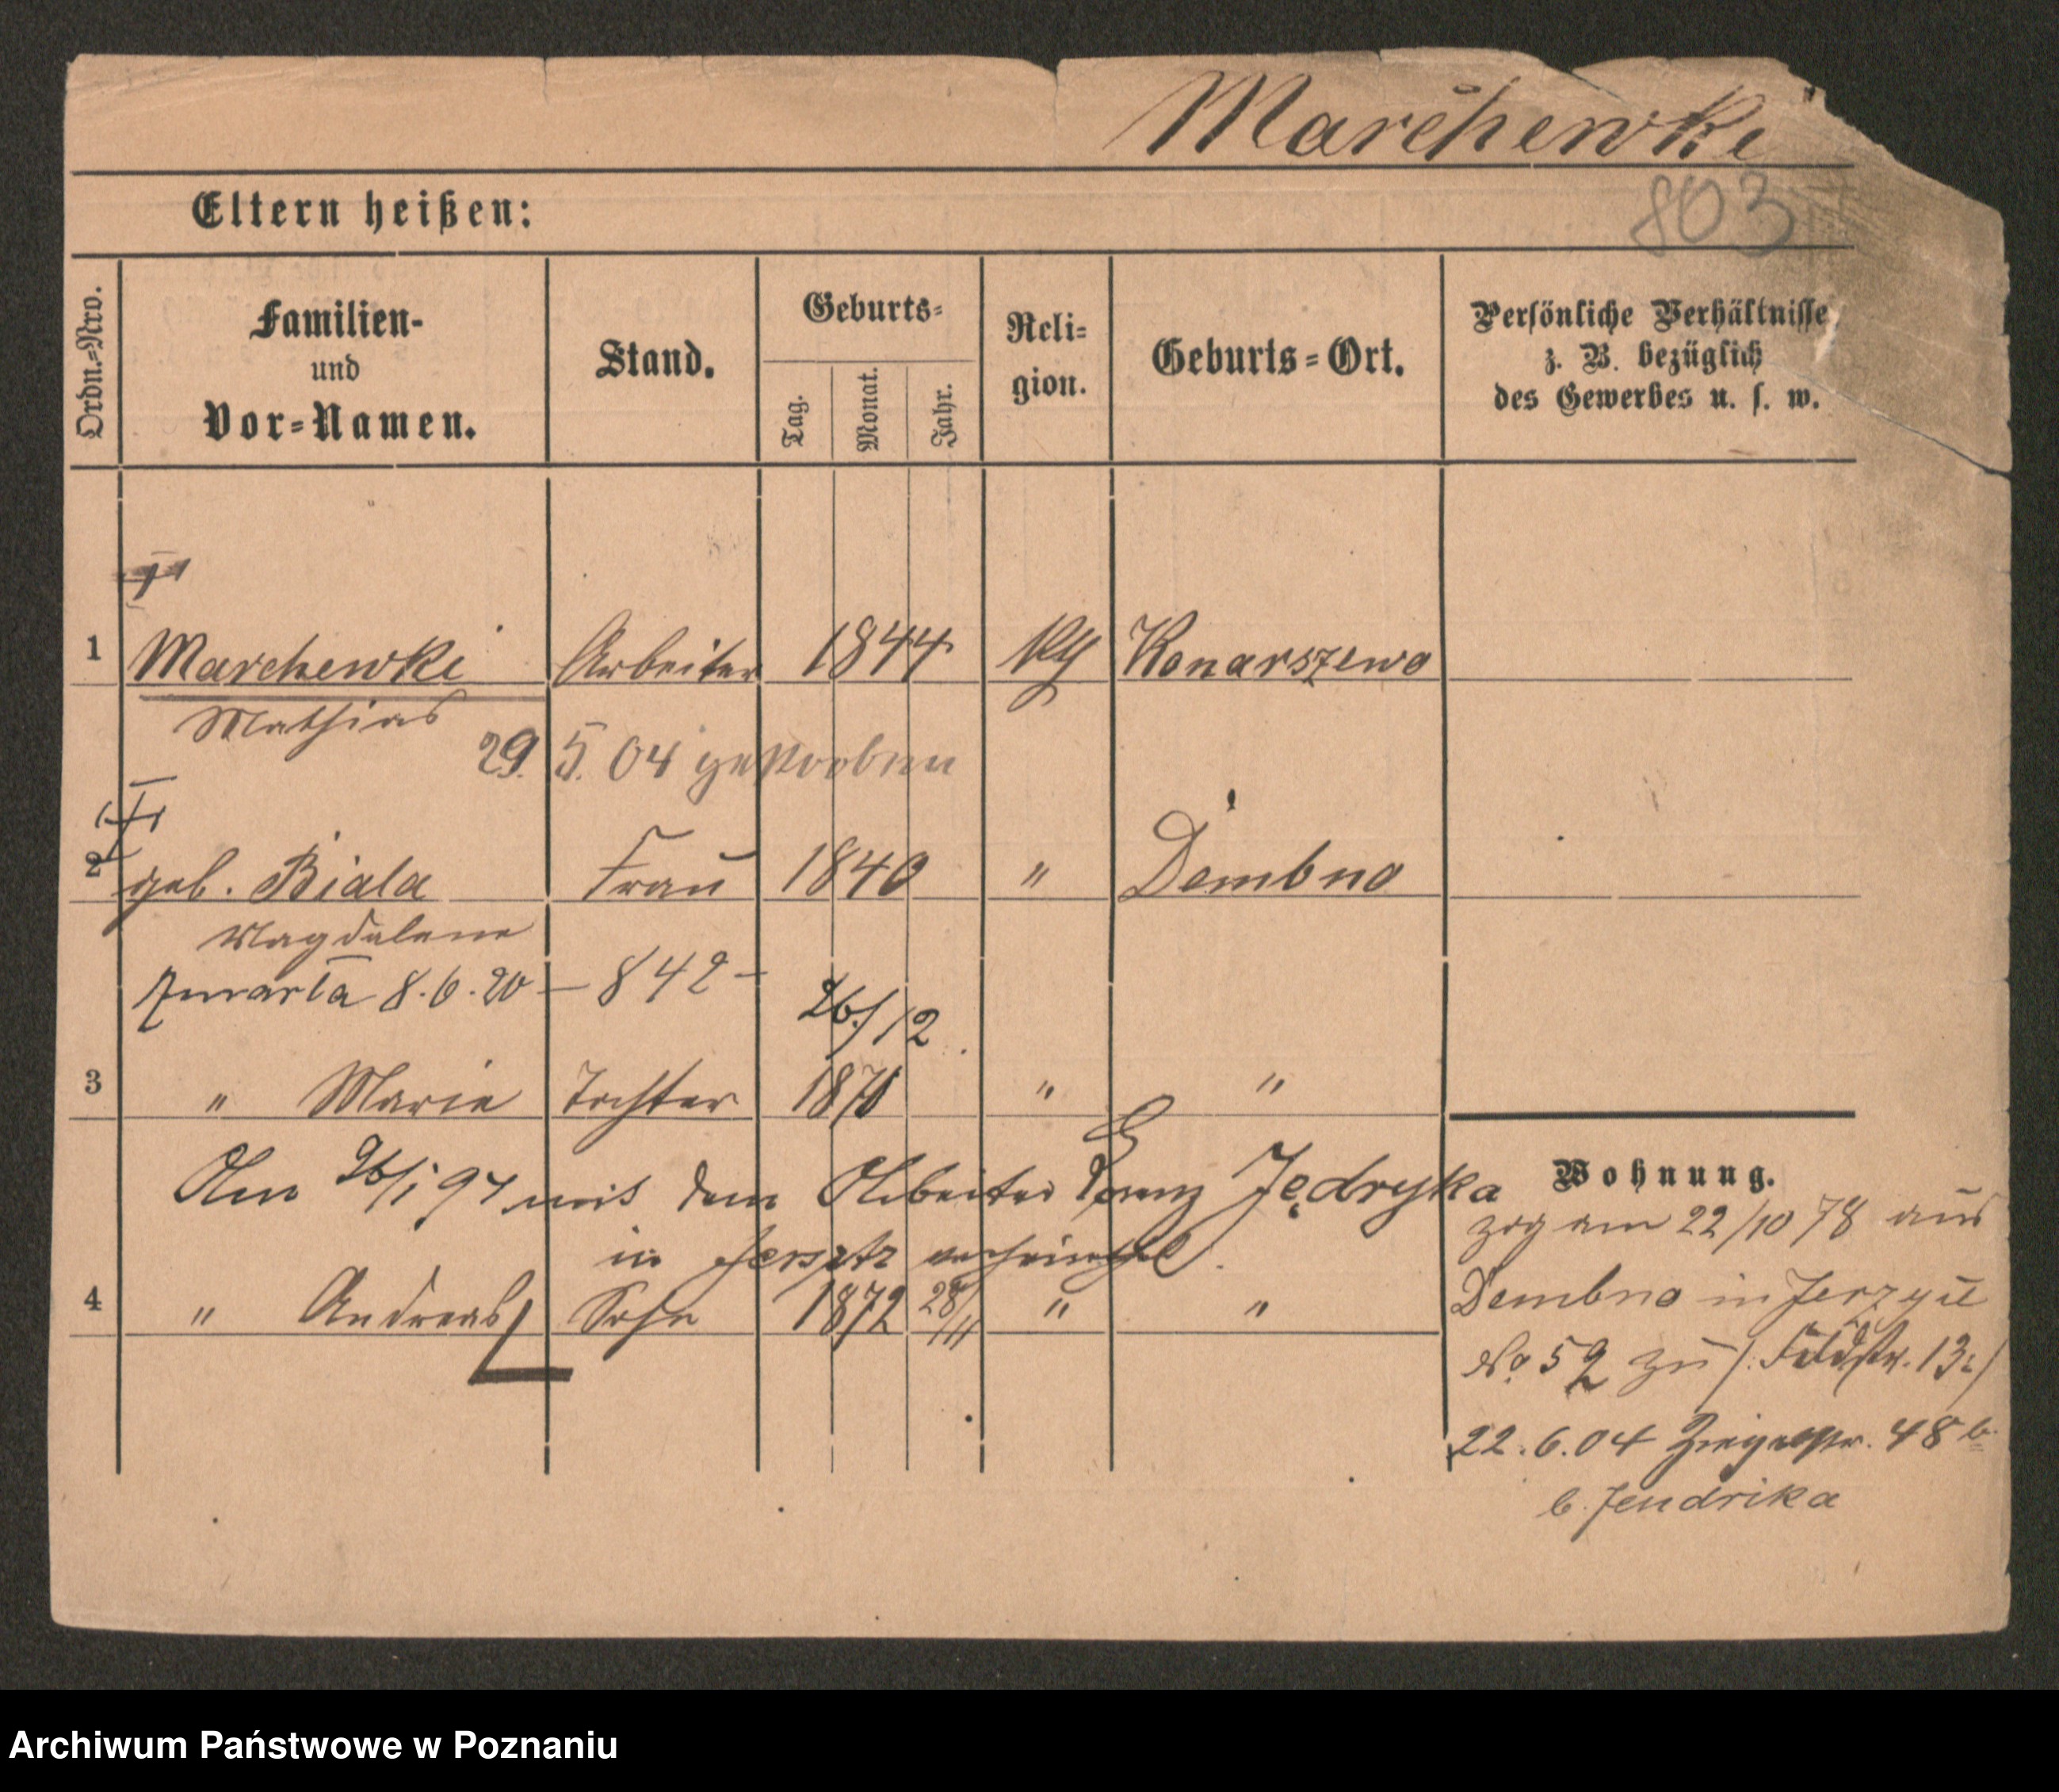 Marchewki
803
Eltern heißen:
Ordn.-Nro.
Familien-
und
Vor-Namen.
Stand.
Geburts-
Tag.
Monat.
Jahr.
Reli-
gion.
Geburts-Ort.
Persönliche Verhältnisse
z. B. bezüglich
des Gewerbes u. s. w.
1 Marchewki Arbeiter 1844 Konarszewo
Mathias
29. 5. 04 gestorben
2 geb. Biala Frau 1840 " Dembno
Magdalene
zmarła 8.6.20 – 842 –
26/12
3 " Marie Tochter 1870 " "
Am 26/1 97 mit dem Arbeiter Lorenz Jędryka
in Jersitz verheirathet.
4 " Andreas Sohn 1872 28/11 " "
Wohnung.
zog am 22/10 78 aus
Dembno in Jerzyce
No 52 zu /: Feldstr. 13 :/
22.6.04 Ziegelstr. 48 b
b. Jendrika
Archiwum Państwowe w Poznaniu